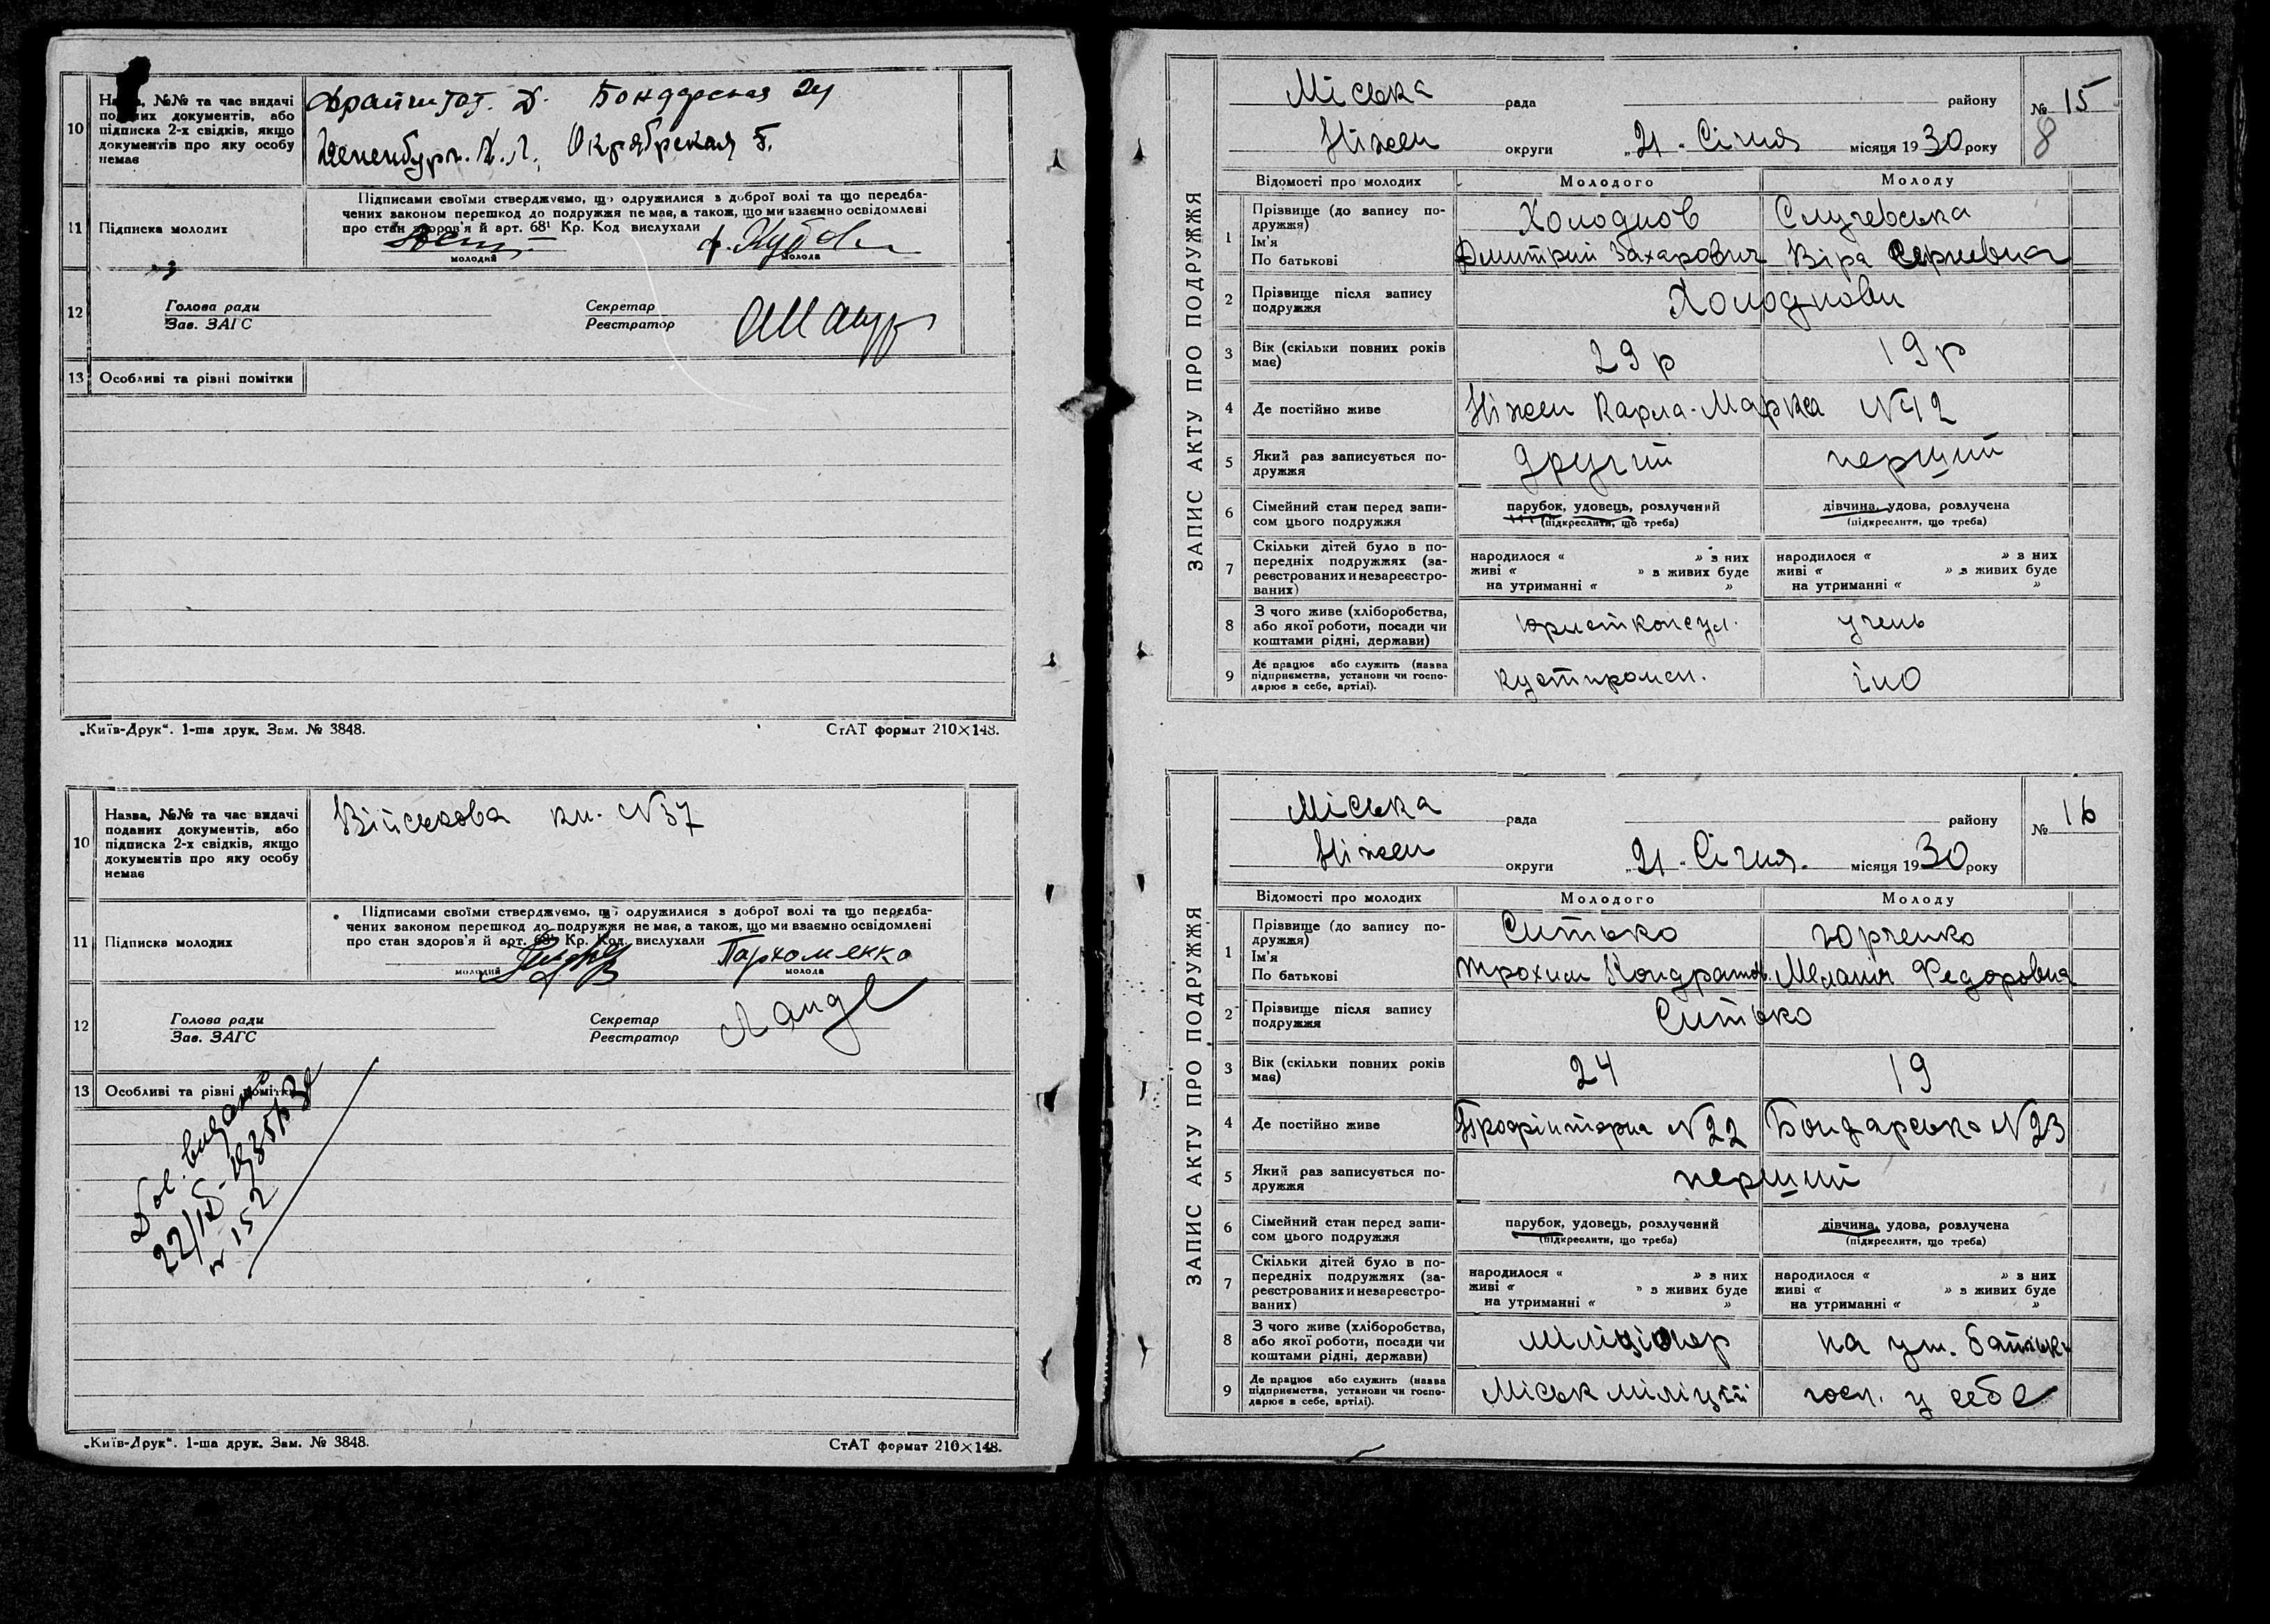 10 Назва, №№ та час видачі поданих документів, або підписка 2-х свідків, якщо документів про яку особу немає
Бондарская 24
Октябрская 5.
11 Підписка молодих
Підписами своїми стверджуємо, що одружилися з доброї волі та що передба-
чених законом перешкод до подружжя не має, а також, що ми взаємно освідомлені
про стан здоров'я й арт. 68¹ Кр. Код вислухали
молодий молода
12 Голова ради Секретар
Зав. ЗАГС Реєстратор
13 Особливі та рівні помітки
„Київ-Друк“. 1-ша друк. Зам. № 3848. СтАТ формат 210×148.
10 Назва, №№ та час видачі поданих документів, або підписка 2-х свідків, якщо документів про яку особу немає
Військова кн. №37
11 Підписка молодих
Підписами своїми стверджуємо, що одружилися з доброї волі та що передба-
чених законом перешкод до подружжя не має, а також, що ми взаємно освідомлені
про стан здоров'я й арт. 68¹ Кр. Код. вислухали
Пархоменко
молодий молода
12 Голова ради Секретар
Зав. ЗАГС Реєстратор
13 Особливі та рівні помітки
№ 152
„Київ-Друк“. 1-ша друк. Зам. № 3848. СтАТ формат 210×148.
ЗАПИС АКТУ ПРО ПОДРУЖЖЯ
Міська рада району № 15
Ніжен округи „21" Січня місяця 1930 року 8
Відомості про молодих Молодого Молоду
1 Прізвище (до запису подружжя) Холоднов Случевська
Ім'я По батькові Дмитрий Захарович Віра Сергиевна
2 Прізвище після запису подружжя Холоднови
3 Вік (скільки повних років має) 29 р 19 р
4 Де постійно живе Ніжен Карла-Маркса №12
5 Який раз записується подружжя другий перший
6 Сімейний стан перед записом цього подружжя парубок, удовець, розлучений дівчина, удова, розлучена
(підкреслити, що треба) (підкреслити, що треба)
7 Скільки дітей було в попередніх подружжях (зареєстрованих и незареєстрованих)
народилося « » з них народилося « » з них
живі « » з живих буде живі « » з живих буде
на утриманні « » на утриманні « »
8 З чого живе (хліборобства, або якої роботи, посади чи коштами рідні, держави) юристконсул. учень
9 Де працює або служить (назва підприємства, установи чи господарює в себе, артілі). кустпромсп. іно
ЗАПИС АКТУ ПРО ПОДРУЖЖЯ
Міська рада району № 16
Ніжен округи „21" Січня. місяця 1930 року
Відомості про молодих Молодого Молоду
1 Прізвище (до запису подружжя) Ситько Юрченко
Ім'я По батькові Трохим Кондратов. Меланія Федоровна
2 Прізвище після запису подружжя Ситько
3 Вік (скільки повних років має) 24 19
4 Де постійно живе Профінтерна №22 Бондарська №23
5 Який раз записується подружжя перший
6 Сімейний стан перед записом цього подружжя парубок, удовець, розлучений дівчина, удова, розлучена
(підкреслити, що треба) (підкреслити, що треба)
7 Скільки дітей було в попередніх подружжях (зареєстрованих и незареєстрованих)
народилося « » з них народилося « » з них
живі « » з живих буде живі « » з живих буде
на утриманні « » на утриманні « »
8 З чого живе (хліборобства, або якої роботи, посади чи коштами рідні, держави) міліціонер на ут. батьк.
9 Де працює або служить (назва підприємства, установи чи господарює в себе, артілі). Міськ міліції госп. у себе